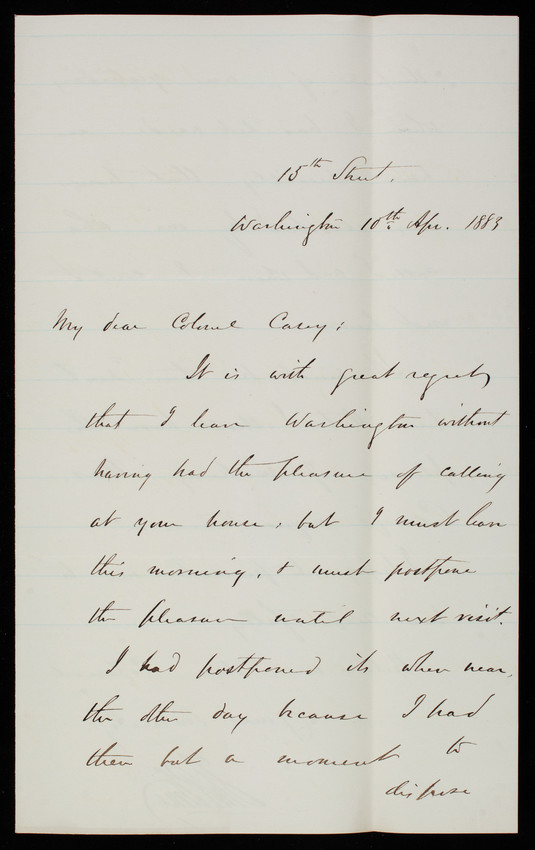 15th Street.
Washington 10th Apr. 1883
My dear Colonel Casey:
It is with great regret
that I leave Washington without
having had the pleasure of calling
at your house, but I must leave
this morning, & must postpone
the pleasure until next visit.
I had postponed it, when near,
the other day because I had
then but a moment to
dispose